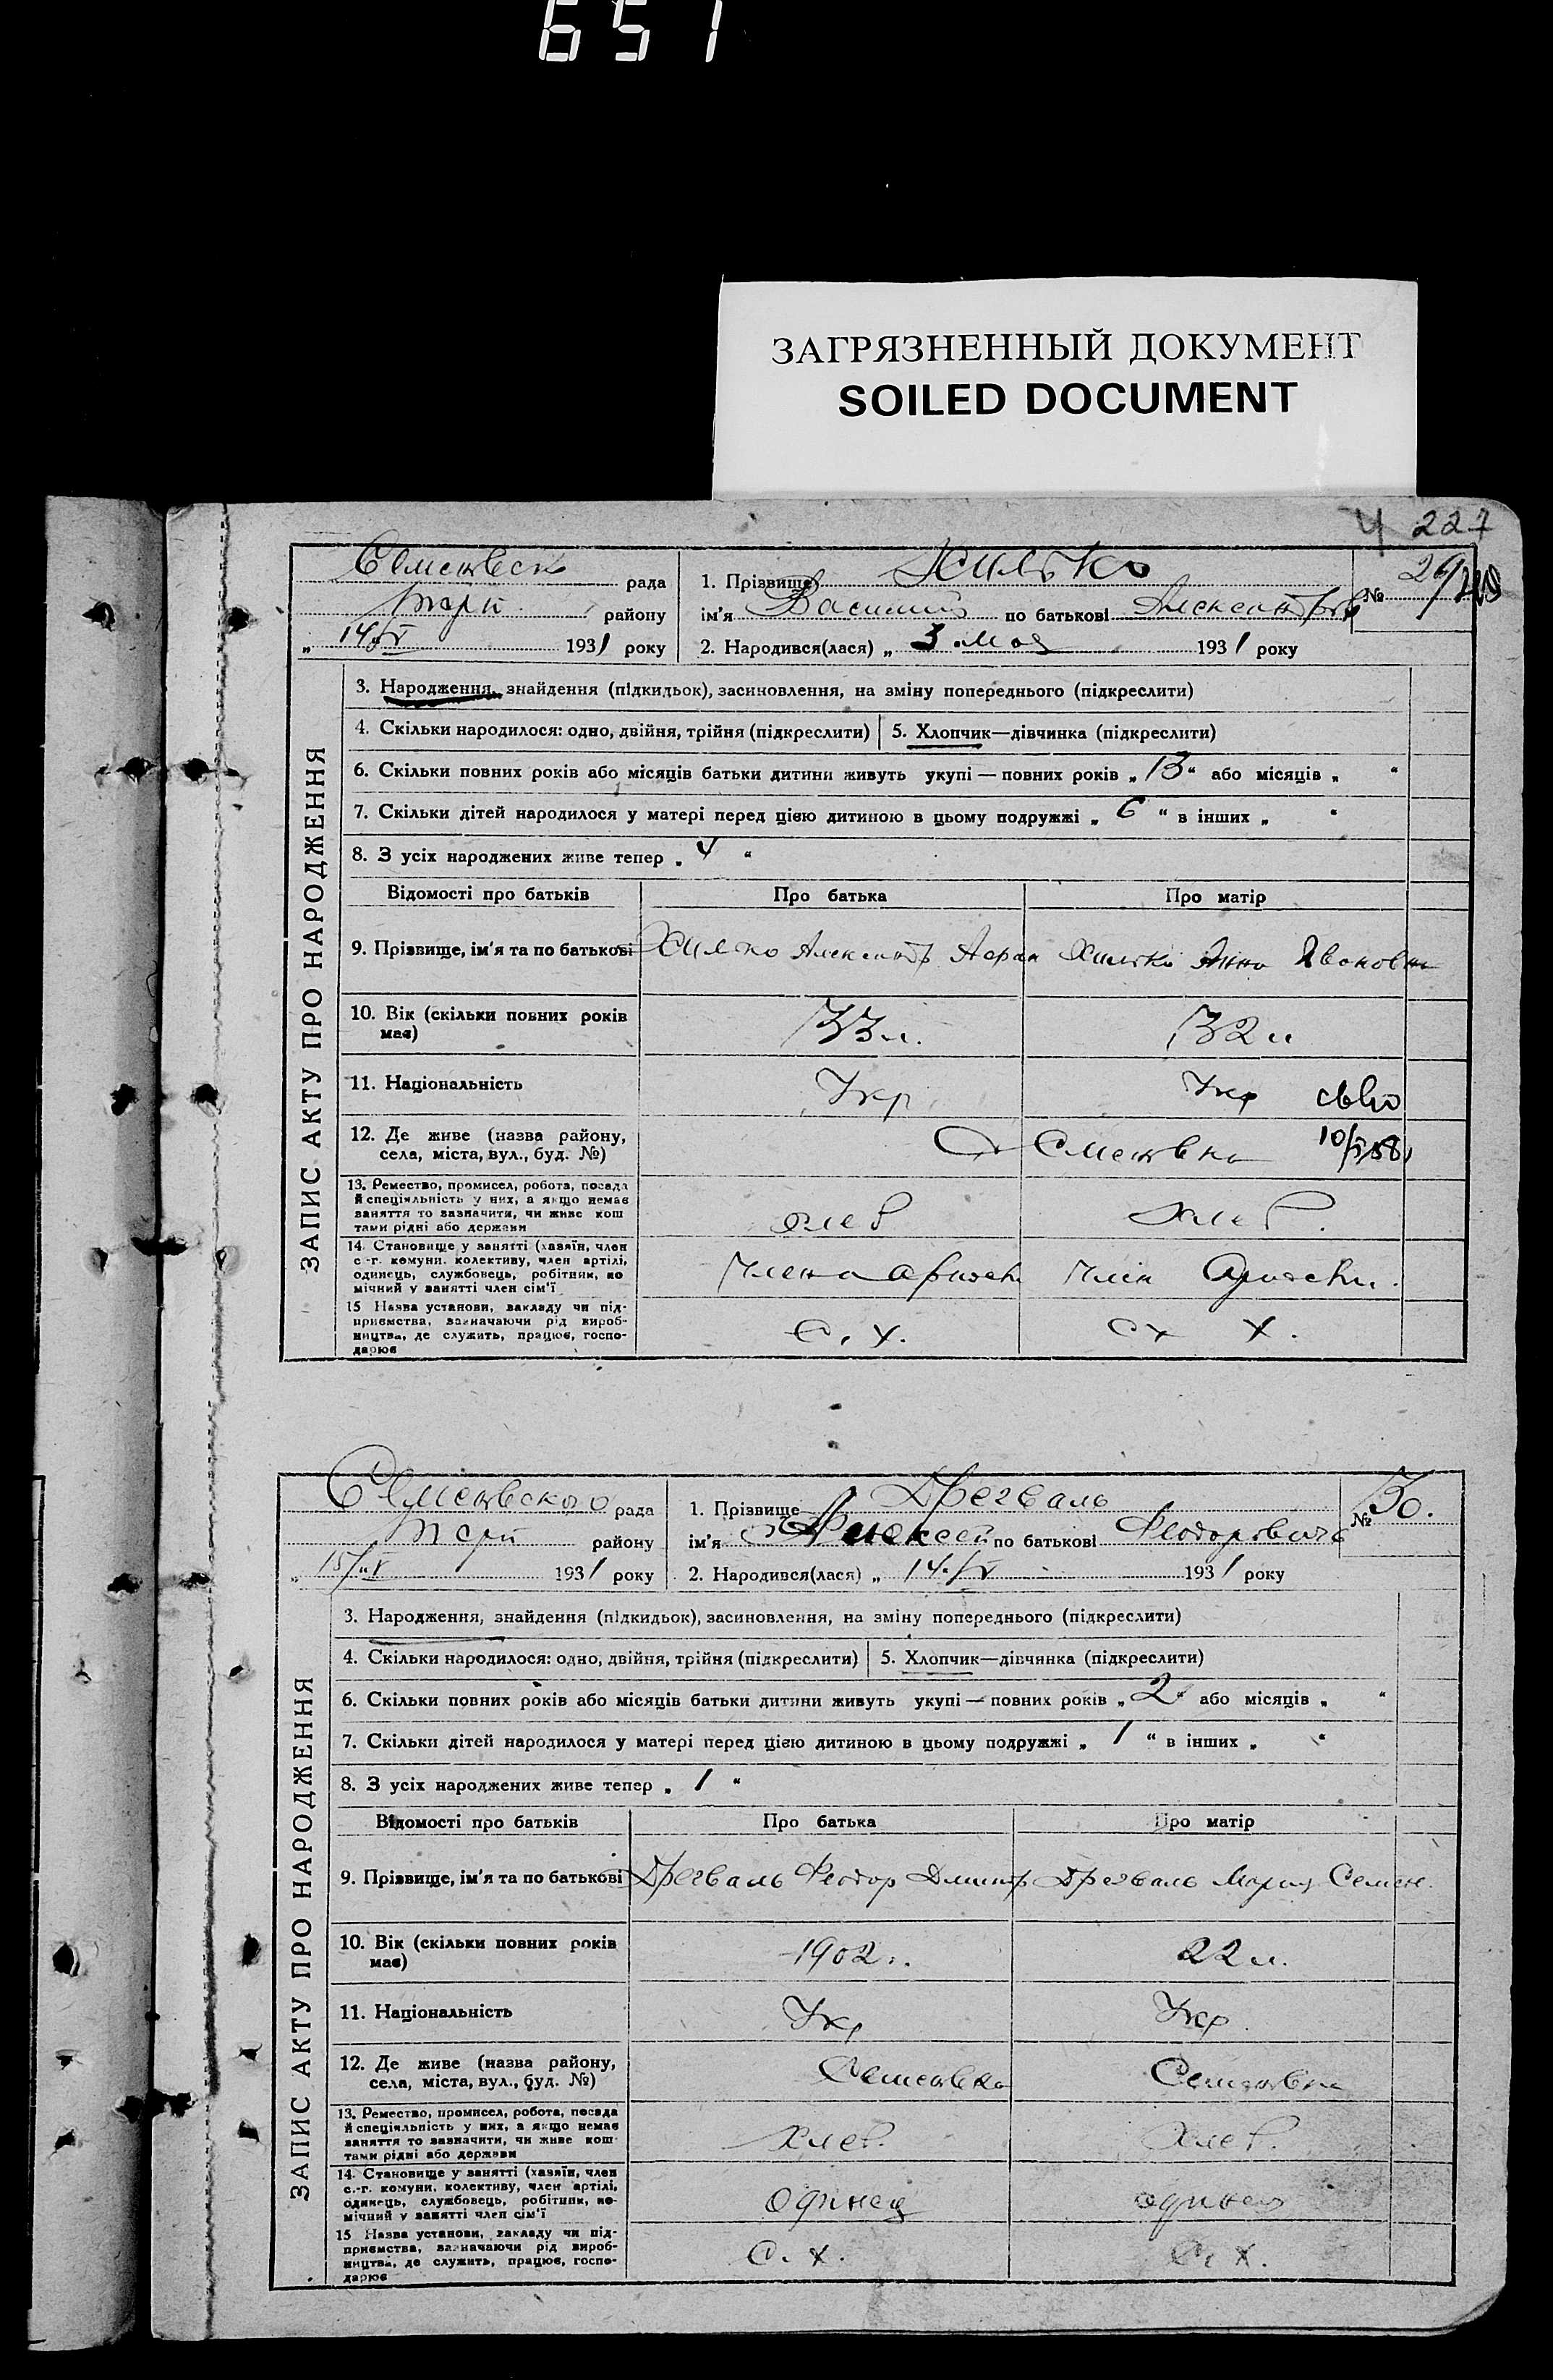 651
ЗАГРЯЗНЕННЫЙ ДОКУМЕНТ
SOILED DOCUMENT
227
рада
району
14/V 1931 року
1. Прізвище Хилько
ім'я Василий по батькові
2. Народився(лася) „ 3 мая 1931 року
№ 29
ЗАПИС АКТУ ПРО НАРОДЖЕННЯ
3. Народження, знайдення (підкидьок), засиновлення, на зміну попереднього (підкреслити)
4. Скільки народилося: одно, двійня, трійня (підкреслити) 5. Хлопчик—дівчинка (підкреслити)
6. Скільки повних років або місяців батьки дитини живуть укупі — повних років „ 13 “ або місяців „ “
7. Скільки дітей народилося у матері перед цією дитиною в цьому подружжі „ 6 “ в інших „ “
8. З усіх народжених живе тепер „ 4 “
Відомості про батьків Про батька Про матір
9. Прізвище, ім'я та по батькові Хилько Александр Хилько Анна Ивановна
10. Вік (скільки повних років має) 33 л. 32 л
11. Національність Укр Укр
12. Де живе (назва району, села, міста, вул., буд. №)
13. Ремество, промисел, робота, посада й спеціяльність у них, а якщо немає заняття то зазначити, чи живе коштами рідні або держави хлеб хлеб.
14. Становище у занятті (хазяїн, член с.-г. комуни, колективу, член артілі, одинець, службовець, робітник, помічний у занятті член сім'ї
15 Назва установи, закладу чи підприємства, зазначаючи рід виробництва, де служить, працює, господарює С. х. с х.
рада
району
15/V 1931 року
1. Прізвище Дрегваль
ім'я Алексей по батькові Феодорович
2. Народився(лася) „ 14/V 1931 року
№ 30.
ЗАПИС АКТУ ПРО НАРОДЖЕННЯ
3. Народження, знайдення (підкидьок), засиновлення, на зміну попереднього (підкреслити)
4. Скільки народилося: одно, двійня, трійня (підкреслити) 5. Хлопчик—дівчинка (підкреслити)
6. Скільки повних років або місяців батьки дитини живуть укупі — повних років „ 2 “ або місяців „ “
7. Скільки дітей народилося у матері перед цією дитиною в цьому подружжі „ 1 “ в інших „ “
8. З усіх народжених живе тепер „ 1 “
Відомості про батьків Про батька Про матір
9. Прізвище, ім'я та по батькові Дрегваль Феодор Дмитр Дрегваль Мария Семен.
10. Вік (скільки повних років має) 1902 г. 22 л.
11. Національність Укр Укр
12. Де живе (назва району, села, міста, вул., буд. №) Семеновка Семеновка
13. Ремество, промисел, робота, посада й спеціяльність у них, а якщо немає заняття то зазначити, чи живе коштами рідні або держави хлеб. хлеб.
14. Становище у занятті (хазяїн, член с.-г. комуни, колективу, член артілі, одинець, службовець, робітник, помічний у занятті член сім'ї одинец одинец
15 Назва установи, закладу чи підприємства, зазначаючи рід виробництва, де служить, працює, господарює С. х. С. х.